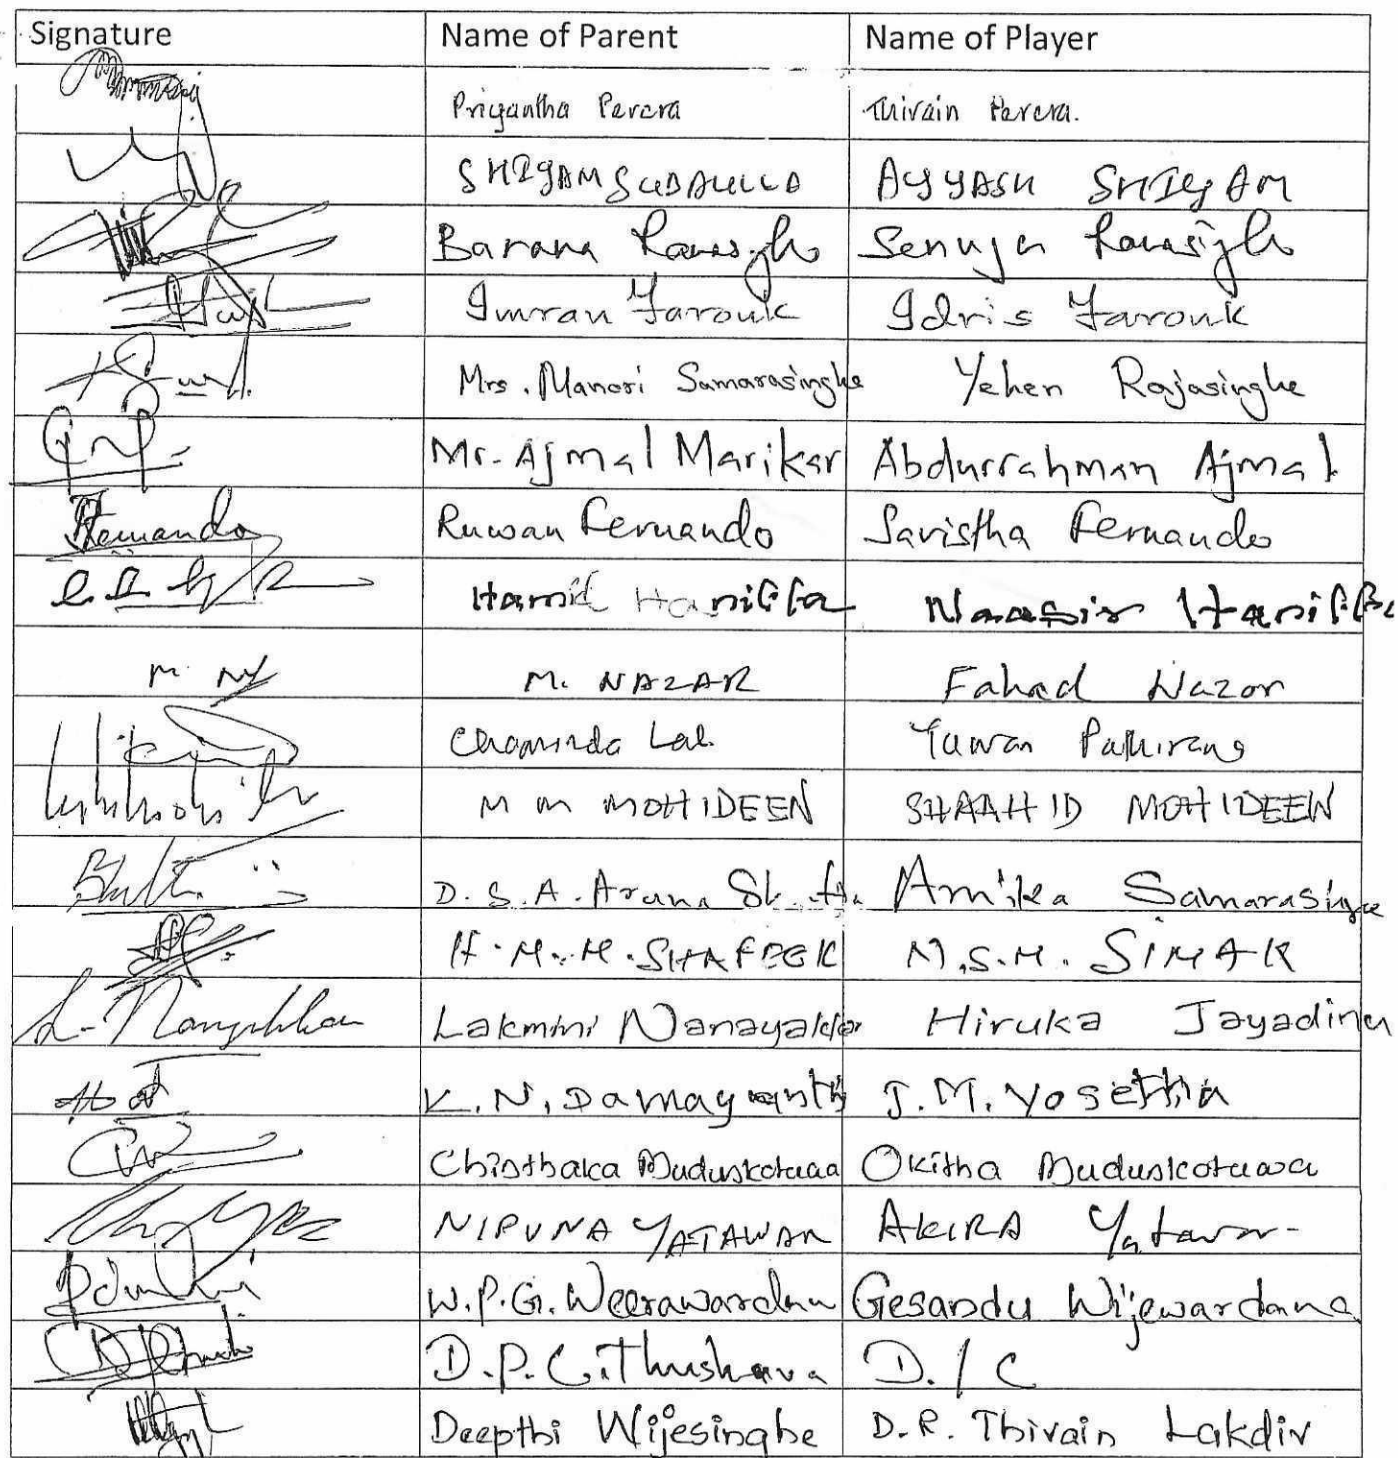 Signature Name of Parent Name of Player
Priyantha Perera Thivain Perera.
SHIYAM SUBAULLA AYYASH SHIYAM
Barana Senuja
Imran Farouk Idris Farouk
Mrs. Manori Samarasinghe Yehen Rajasinghe
Mr. Ajmal Marikar Abdurrahman Ajmal
Fernando Ruwan Fernando Savistha Fernando
Hamid Haniffa Naasir Haniffa
M. NAZAR Fahad Nazar
Chaminda Lal. Yuwan
M M MOHIDEEN SHAAHID MOHIDEEN
D. S. A. Aruna Amika Samarasinge
H. M. M. SHAFEEK M.S.M. SIMAK
Lakmini Nanayakkar Hiruka Jayadinu
K. N. Damayanthi J. M. Yosetha
Chinthaka Muduskotuwa Okitha Muduskotuwa
NIPUNA YATAWAR AKIRA
W. P. G. Weerawardana Gesandu Wijewardana
D. P. C. Thushara D. / C
Deepthi Wijesinghe D. R. Thivain Lakdiv